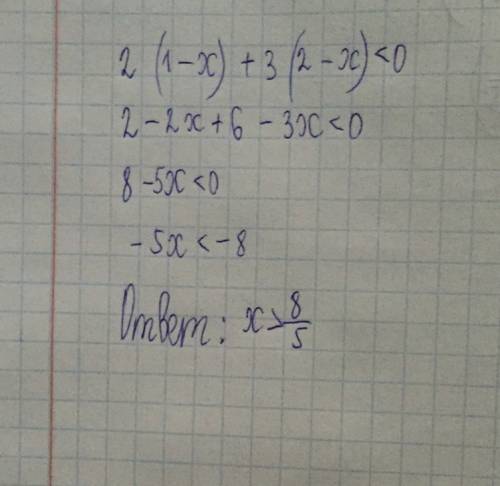 2 (1-x) + 3 (2-x) < 0
2 - 2x + 6 - 3x < 0
8 - 5x < 0
- 5x < - 8
Ответ: x > 8/5